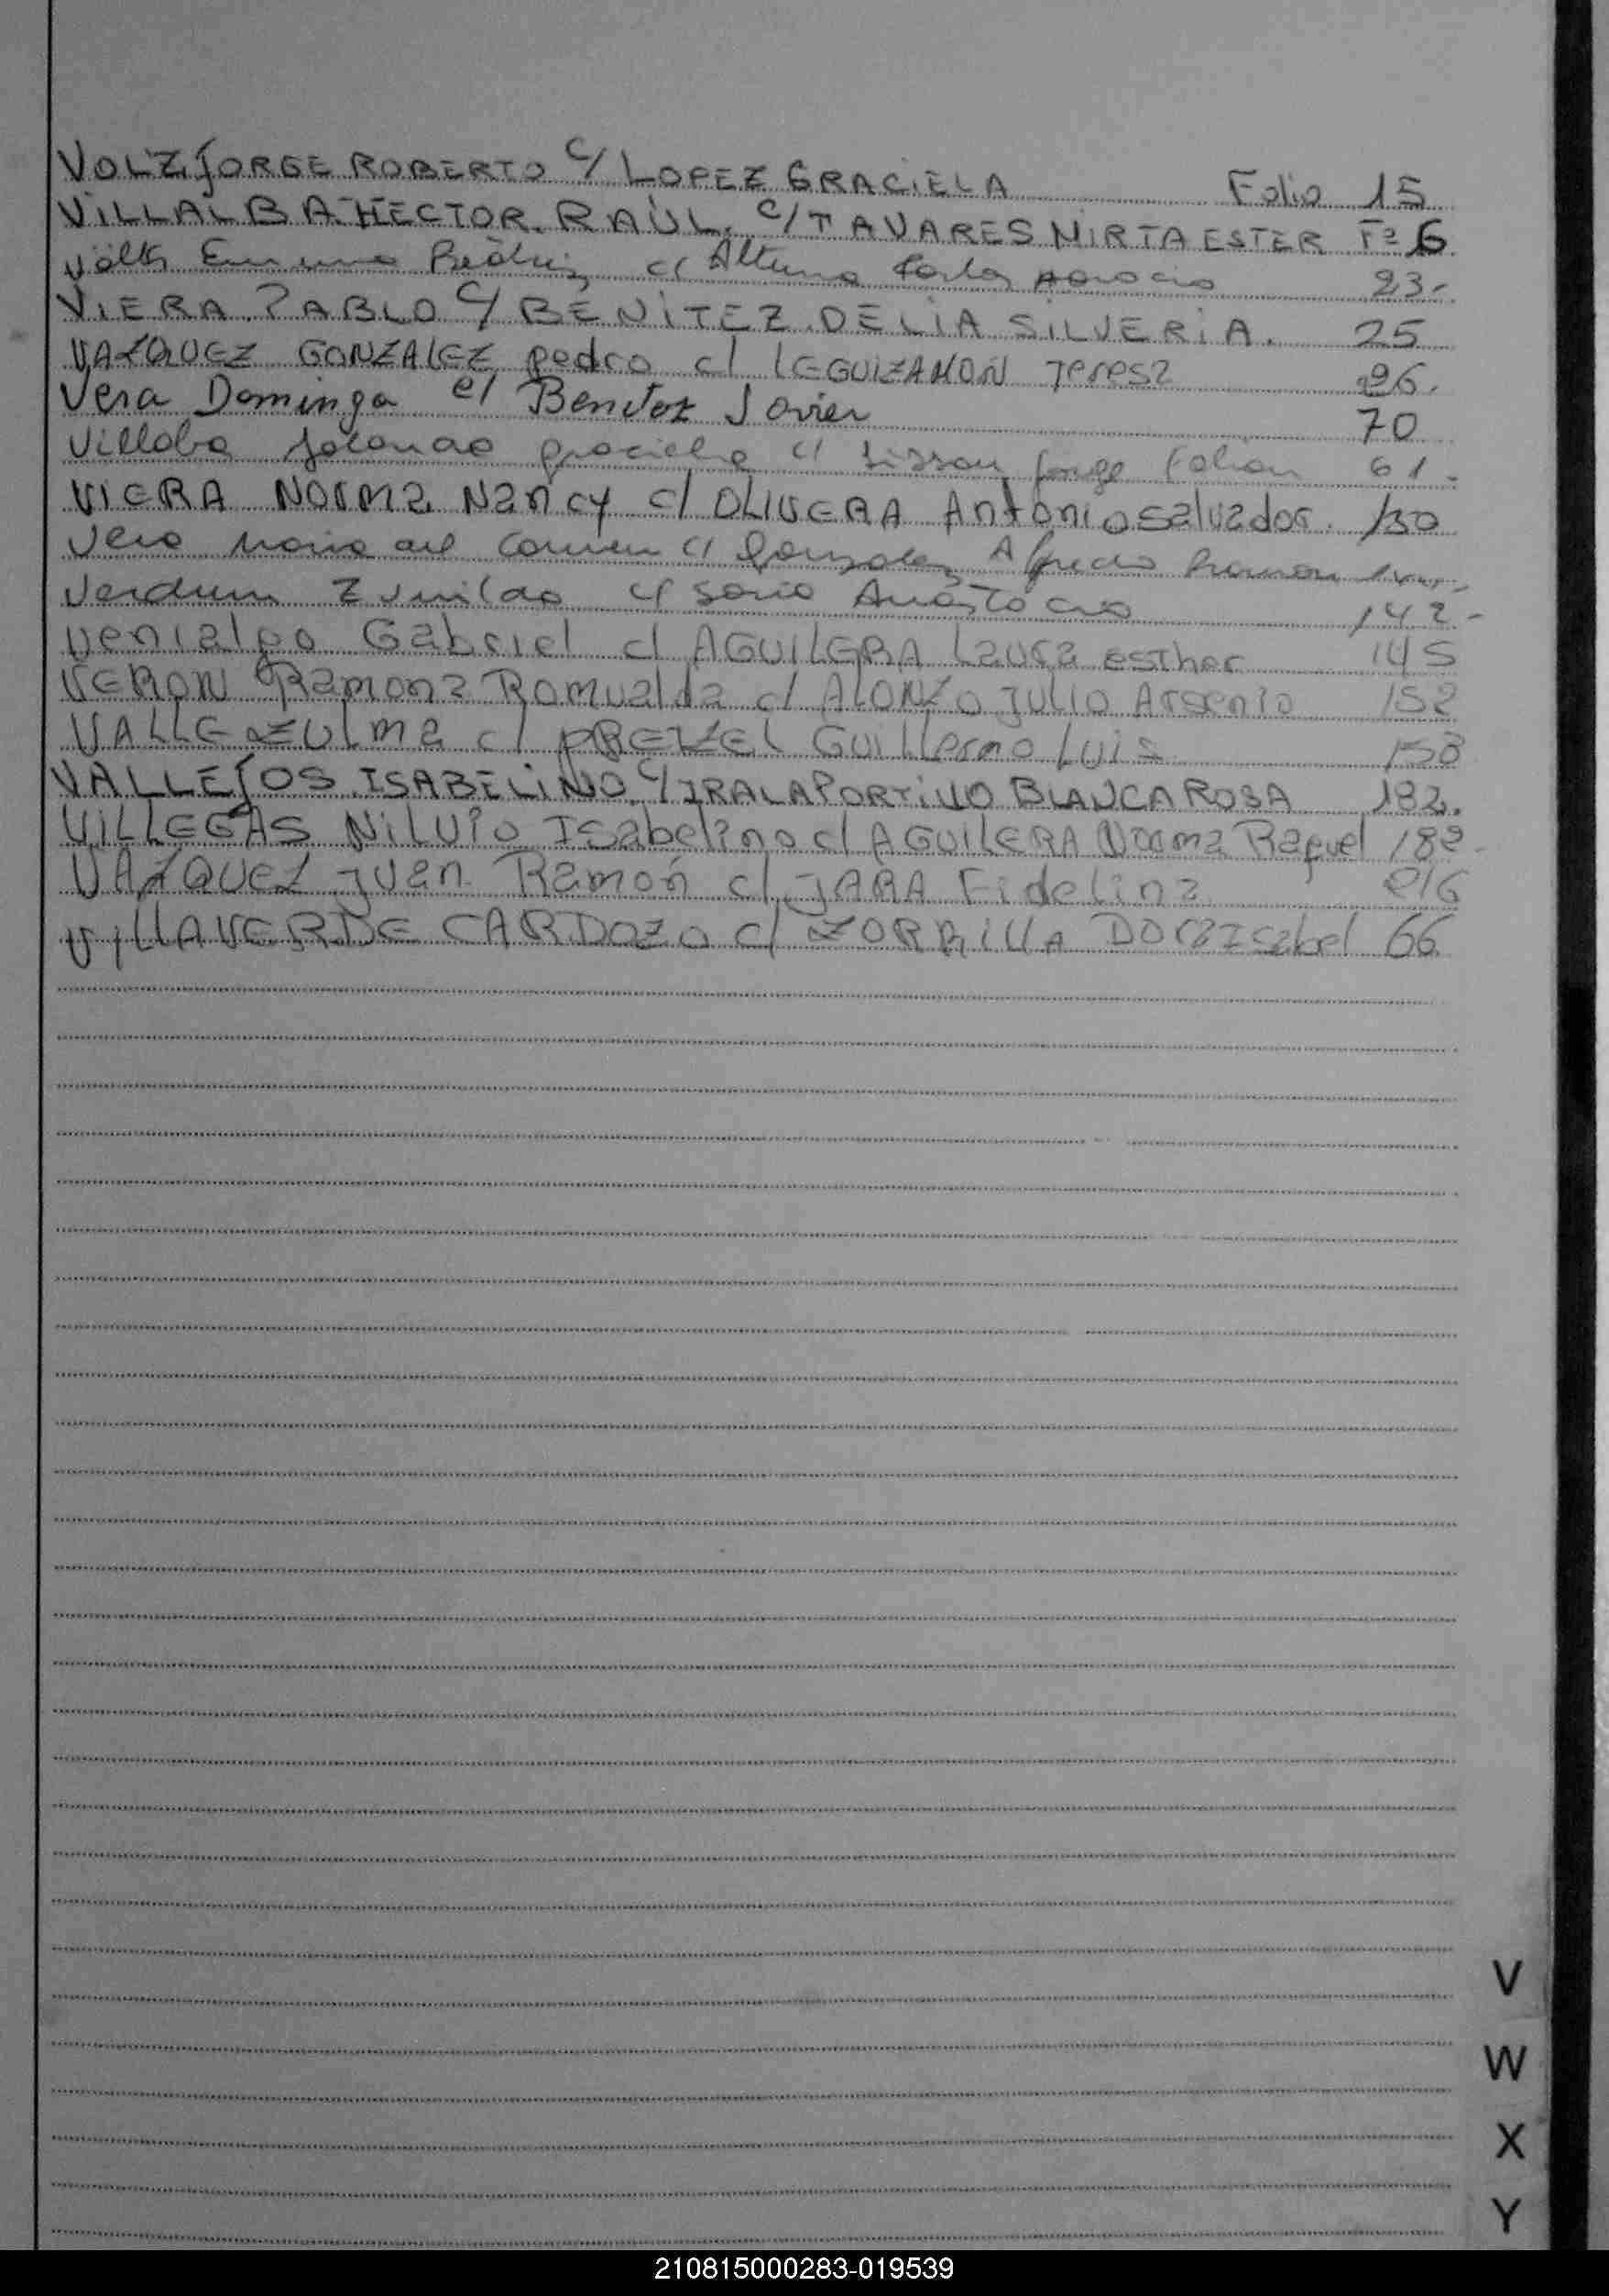 VOLZ, JORGE ROBERTO C/ LOPEZ GRACIELA Folio 15
VILLALBA HECTOR RAÚL. C/ TAVARES MIRTA ESTER Fº 6
Beatriz c/ 23.
VIERA PABLO C/ BENITEZ DELIA SILVERIA. 25
VAZQUEZ GONZALEZ pedro c/ LEGUIZAMÓN Teresa 26.
Vera Dominga c/ Benitez Javier 70
c/ Jorge Fabian 61.
VIERA Norma Nancy c/ OLIVERA Antonio Salvador. 130
Vera Maria del Carmen c/ Gonzalez Alfredo Ramon
Verdum Zunilda c/ 142.-
Venialgo Gabriel c/ AGUILERA Laura Esther 145
VERON Ramona Romualda c/ ALONZO Julio Arsenio 152
VALLE ZULMA c/ Guillermo Luis 158
VALLEJOS ISABELINO C/ IRALA PORTILLO BLANCA ROSA 182.
VILLEGAS Nilvio Isabelino c/ AGUILERA Norma Raquel
VAZQUEZ Juan Ramón c/ JARA Fidelina 216
VILLAVERDE CARDOZO c/ ZORRILLA Dora Isabel 66
V
W
X
Y
210815000283-019539